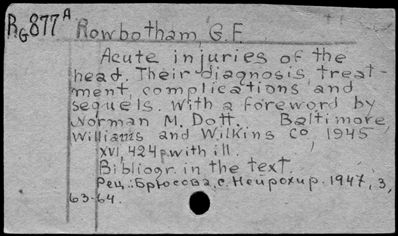 RG877A Rowbotham G.F.
Acute injuries of the
head. Their diagnosis, treat-
ment, complications and
sequels. With a foreword by
Norman M. Dott. Baltimore,
Williams and Wilkins Co, 1945
XVI, 424p. with ill.
Bibliogr. in the text.
Рец.: Брюсова, с. Нейрохир. 1947, 3,
63-64.